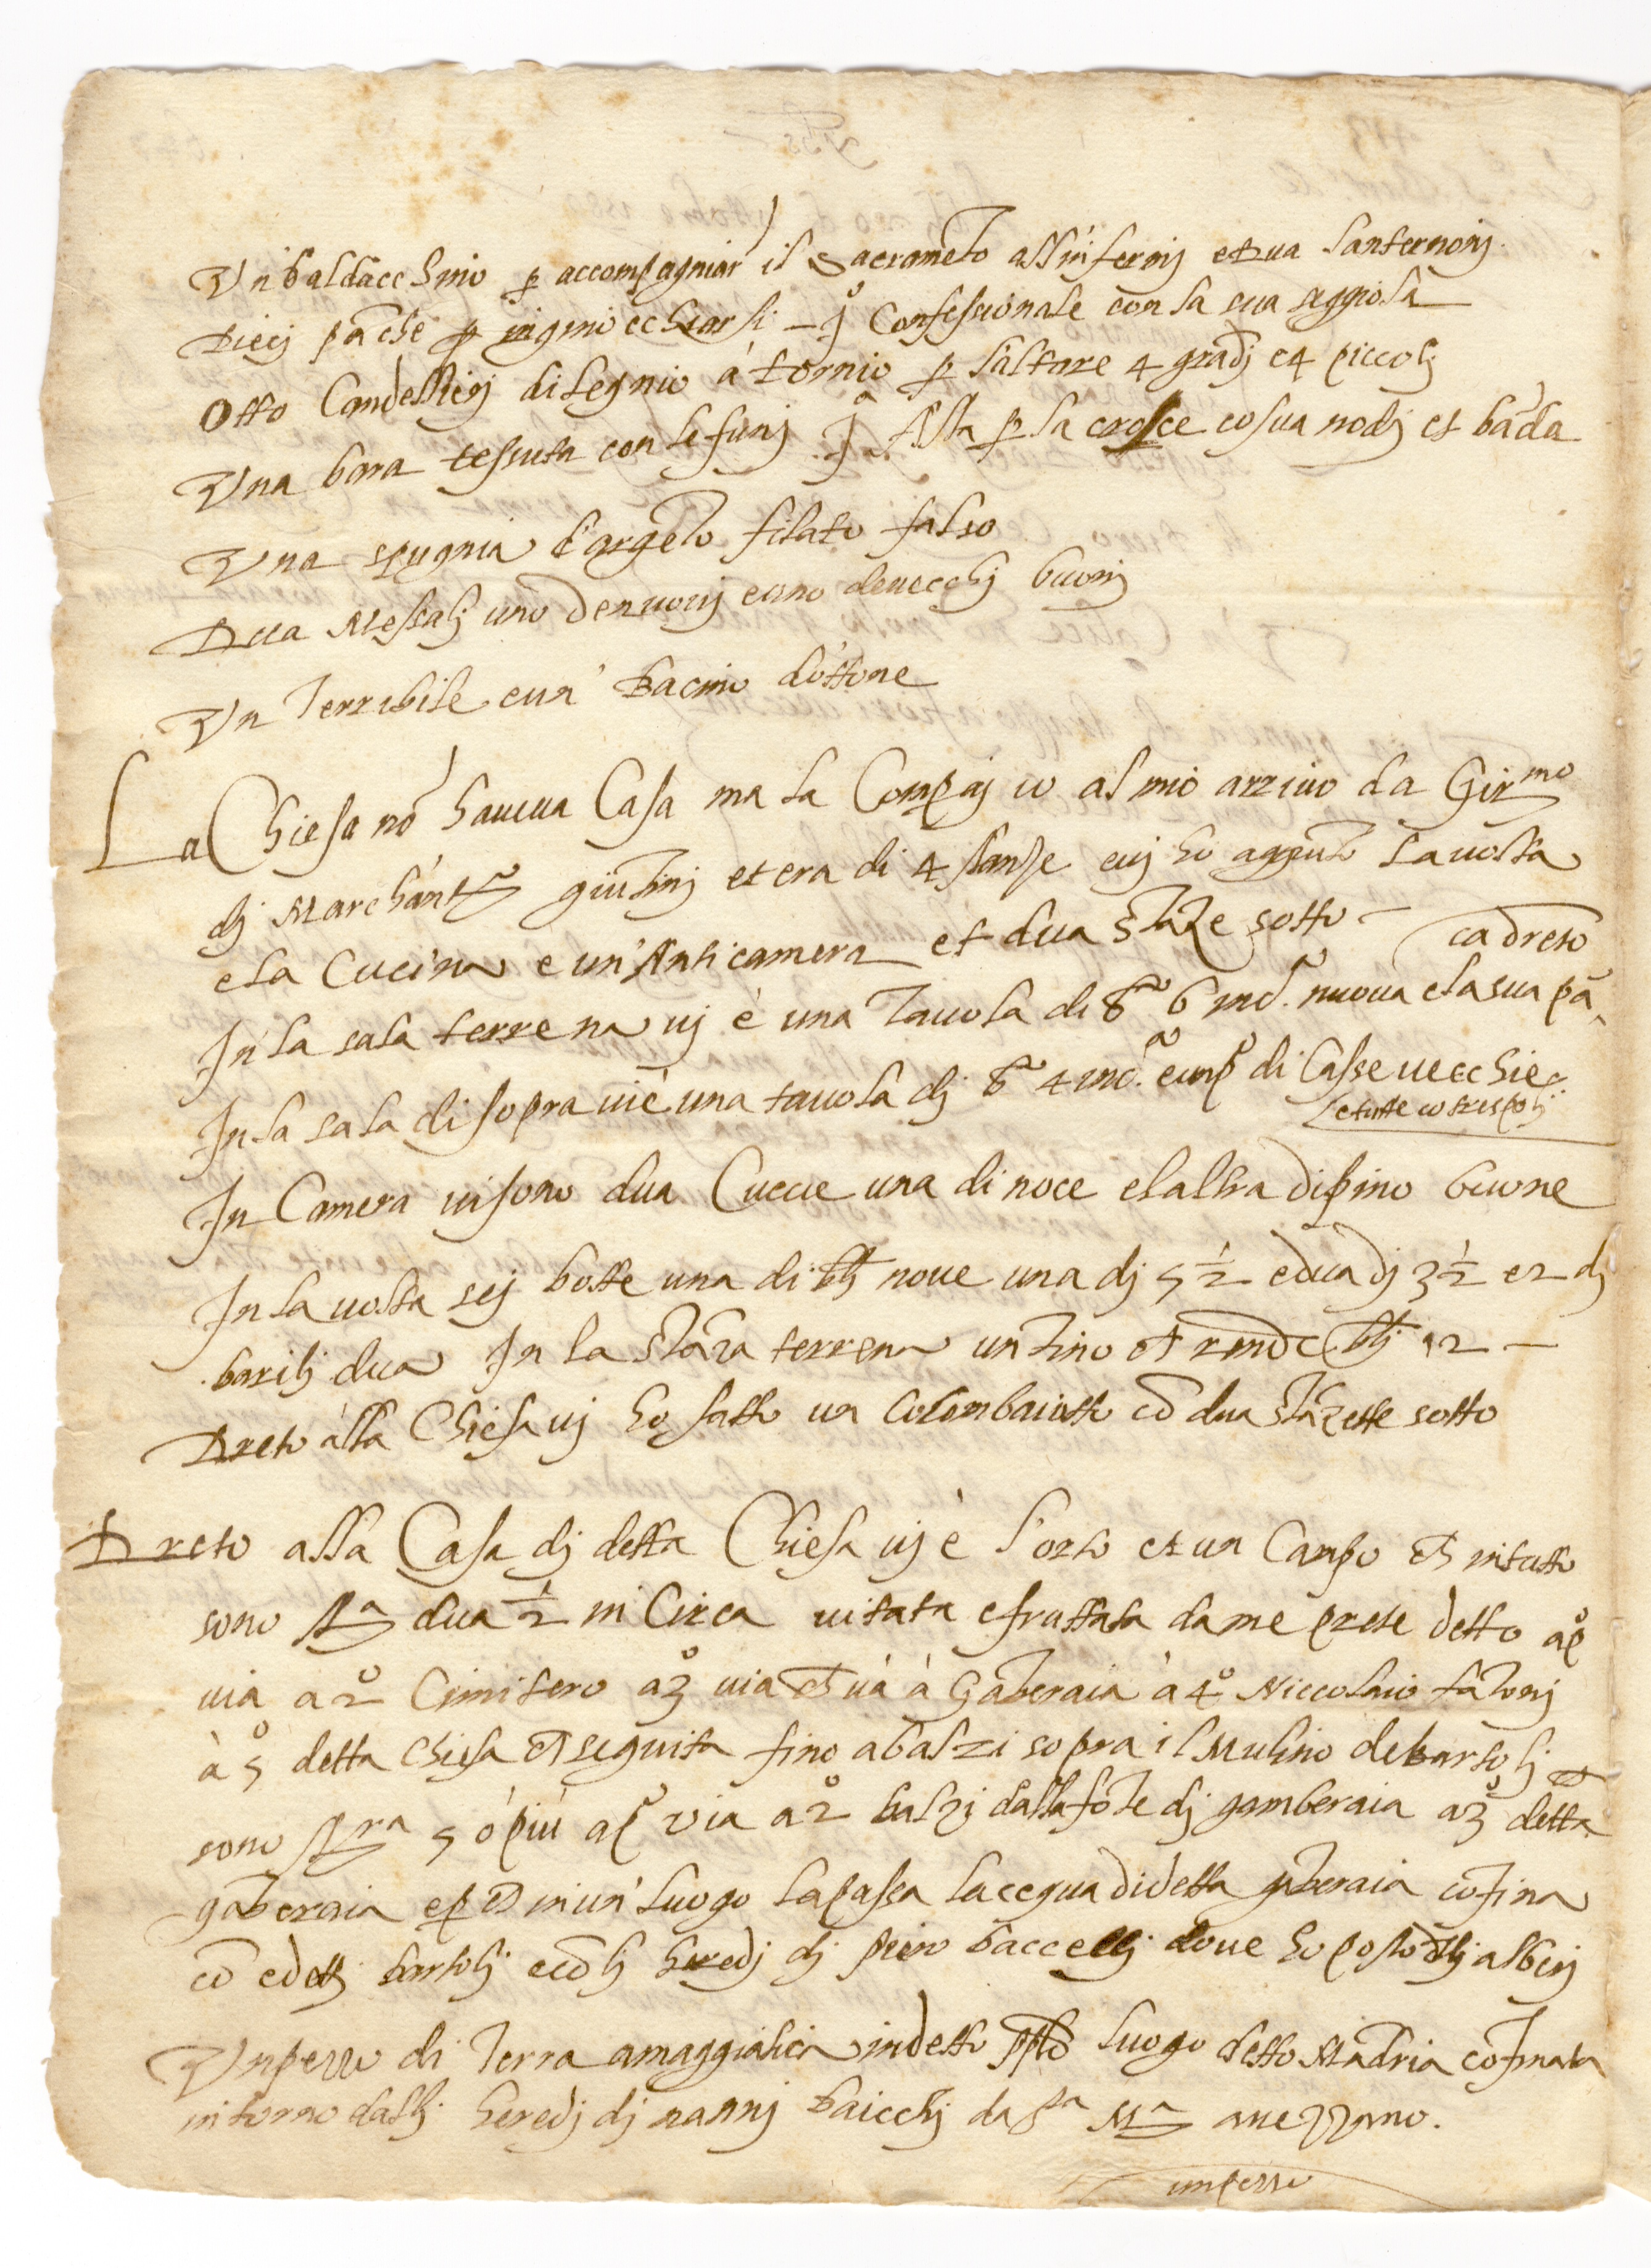 Un' baldacchino p accompagniar il Sacrameto all'infermj et dua lanternonj.
Diecj pāche p inginocchiarsi – jº Confessionale con la sua seggiola
Otto Candellierj di legnio á tornio p l'altare 4 gradj e 4 piccolj
Una bara tessuta con le funj jª Asta p la croce co sua nodj et bāda
Una spugnia d'argēto filato falso
Dua Messalj uno de nuovj e uno de vecchj buonj
Un Terribile e un' Bacino d'ottone
La Chiesa nō haveva Casa ma la Compaj io al mio arrivo da Girmo
dj Marchant giuntinj et era di 4 stanze evj ho aggiuto la volta
e la Cucina e un' Anticamera et dua stāze sotto –
In la sala terrena vj è una Tavola di bª 6 inc. nuova e la sua pā
ca dreto
In la sala di sopra viè una tavola dj bª 4 inc. e un pº di Casse vecchie
e tutte co trespolj
In Camera vi sono dua Cuccie una di noce e l'altra di pino buone
In la volta sej botte una di blj nove una dj 5 ½ e dua dj 3 ½ e 2 dj
barilj dua In la stāza terrena un Tino et rende blj 12 –
Dreto alla Chiesa vj ho fatto un Colombaiotto cō dua stāzette sotto
Dreto alla Casa dj detta Chiesa vj è l'orto et un Campo et in tutto
sono stª dua ½ in Circa vitata e fruttata da me prete detto a pº
via a 2º Cimitero a 3º via et và à Gāberaia à 4º Niccolaio fātonj
à 5º detta chiesa et seguita fino a balzi sopra il Mulino de bartolj et
sono stra 5 ò più a pº via a 2º balzj dalla fōte dj gamberaia a 3º detta
gāberaia e p et in un' luogo la passa l'acequa di detta gāberaia cōfina
cō e dettj bartolj e cō lj heredj dj piero baccellj dove ho posto dlj alberj
Un pezzo di Terra a maggialica in detto pplo luogo detto Mādria cōfinata
intorno dallj heredj dj nannj baicchj da Sta Mª a mezzano.
un pezzo